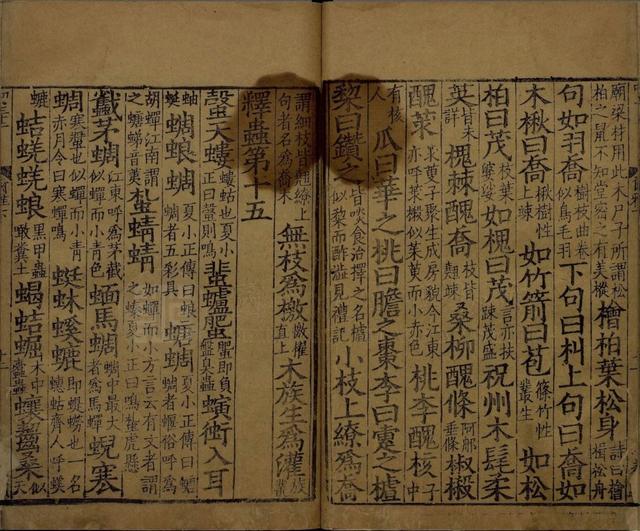 廟梁材用此木尸子所謂松柏之鼠不知堂密之有美樅檜柏葉松身詩曰檜楫松舟
句如羽喬樹枝曲卷似鳥毛羽下句曰朻上句曰喬如
木楸曰喬楸樹性上竦如竹箭曰苞篠竹性叢生如松
柏曰茂枝葉婆娑如槐曰茂言亦扶踈茂盛祝州木髦柔
英皆未詳槐棘醜喬枝皆翹竦桑柳醜條阿那垂條椒樧
醜莍莍萸子聚生成房貌今江東亦呼莍樧似茱萸而小赤色桃李醜核子中
有核人瓜曰華之桃曰膽之棗李曰疐之樝
棃曰鑽之皆啖食治擇之名樝似棃而酢澁見禮記小枝上繚爲喬
謂細枝皆翹繚上句者名爲喬木無枝爲檄檄擢直上木族生爲灌族叢
釋蟲第十五
螜天螻螻蛄也夏小正曰螜則鳴蜚蠦蜰蜰即負盤臭蟲螾衝入耳
蚰蜒蜩蜋蜩夏小正傳曰蜋蜩者五彩具螗蜩夏小正傳曰螗蜩者蝘俗呼爲
胡蟬江南謂之螗蛦音荑蚻蜻蜻如蟬而小方言云有文者謂之螓夏小正曰鳴蚻虎懸
蠽茅蜩江東呼爲茅截似蟬而小青色蝒馬蜩蜩中最大者爲馬蟬蜺寒
蜩寒螿也似蟬而小青赤月令曰寒蟬鳴蜓蚞螇螰即蝭蟧也一名蟪蛄齊人呼螇
螰蛣蜣蜣蜋黑甲蟲噉糞土蝎蛣𧌑木中蠹蟲蠰齧桑似天